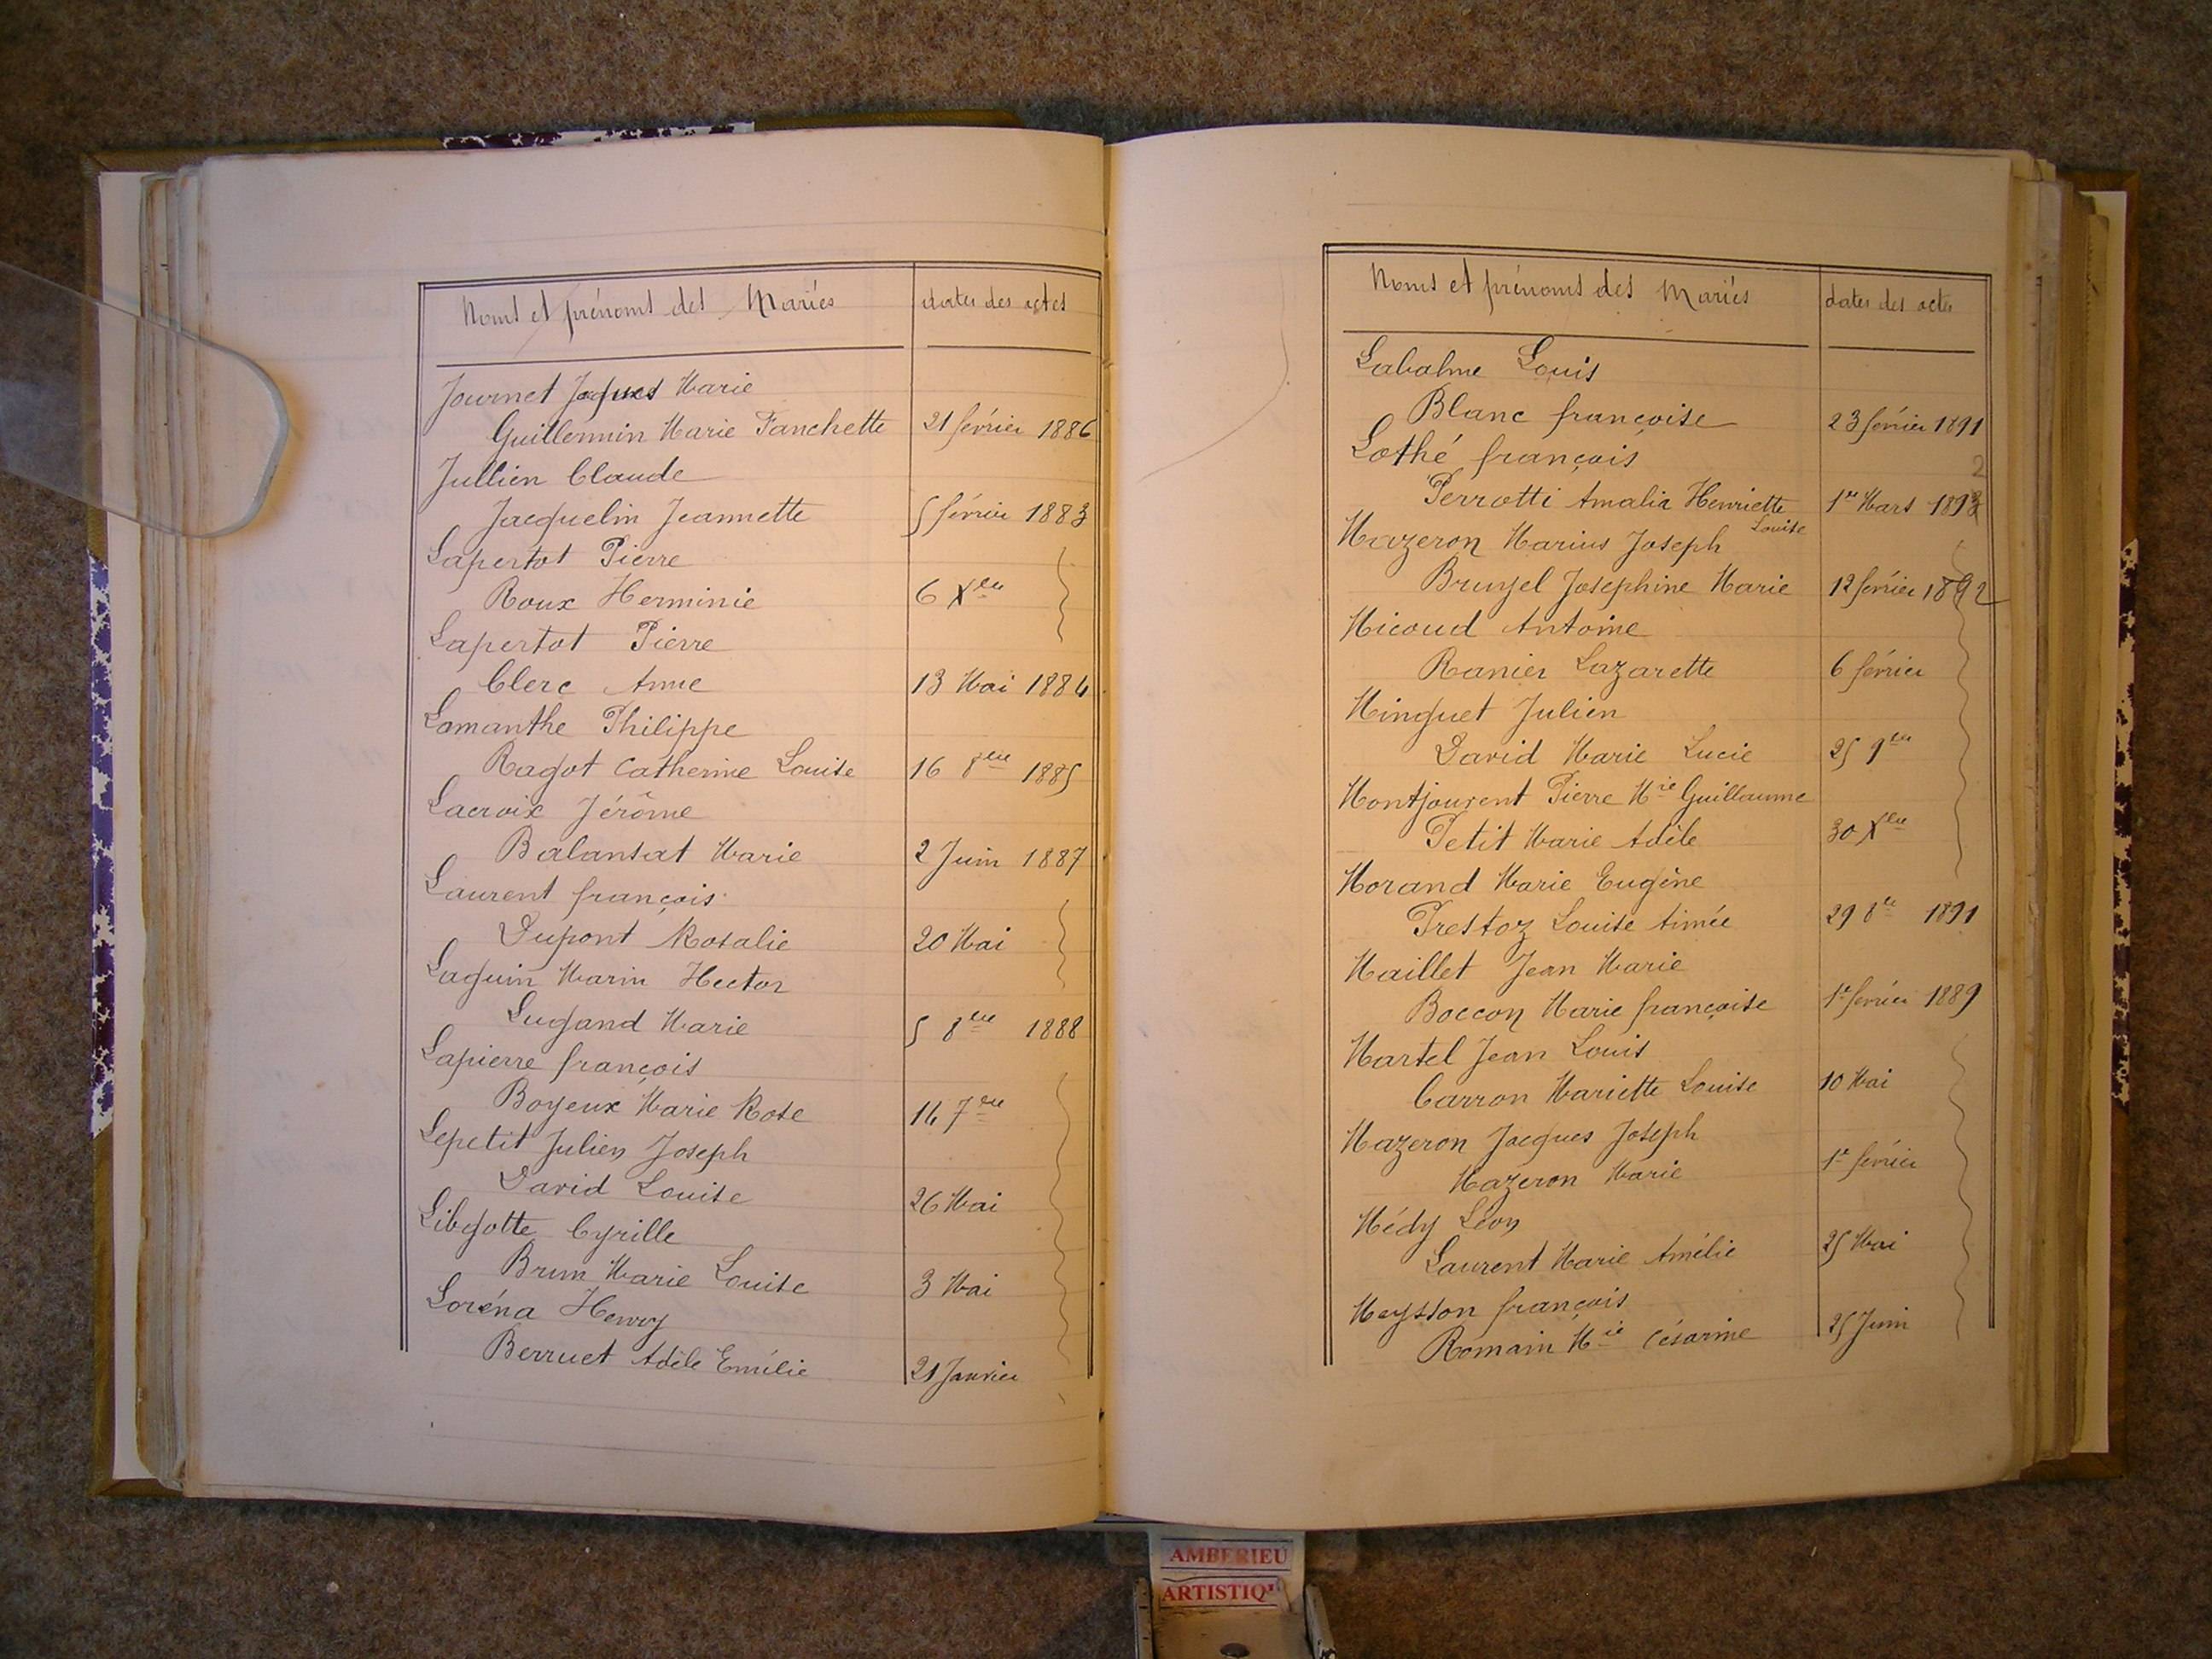 Noms et prénoms des Mariés dates des actes
Journet Jaques Marie
Guillermin Marie Fanchette 21 février 1886
Jullien Claude
Jacquelin Jeannette 5 février 1883
Lapertot Pierre
Roux Herminie 6 Xbre
Lapertot Pierre
Clerc Anne 13 Mai 1884
Lamanthe Philippe
Ragot Catherine Louise 16 8bre 1885
Lacroix Jérôme
Balansat Marie 2 Juin 1887
Laurent françois
Dupont Rosalie 20 Mai
Laguin Marin Hector
Lugand Marie 5 8bre 1888
Lapierre françois
Boyeux Marie Rose 14 7bre
Lepetit Julien Joseph
David Louise 26 Mai
Libgotte Cyrille
Brun Marie Louise 3 Mai
Loréna Henry
Berruet Adèle Emélie 21 Janvier
Noms et prénoms des Mariés dates des actes
Labalme Louis
Blanc françoise 23 février 1891
Lothé françois
2
Perrotti Amalia Henriette 1er Mars 1893
Louise
Mazeron Marius Joseph
Bruyel Josephine Marie 12 février 1892
Micoud Antoine
Ranier Lazarette 6 février
Minguet Julien
David Marie Lucie 25 9bre
Montjouvent Pierre Mie Guillaume
Petit Marie Adèle 30 Xbre
Morand Marie Eugène
Prestoz Louise Aimée 29 8bre 1891
Maillet Jean Marie
Boccon Marie françoise 1er février 1889
Martel Jean Louis
Carron Mariette Louise 10 Mai
Mazeron Jacques Joseph
Mazeron Marie 1er février
Médy Léon
Laurent Marie Amélie 25 Mai
Meysson françois
Romain Mie Césarine 25 Juin
AMBERIEU
ARTISTIQ